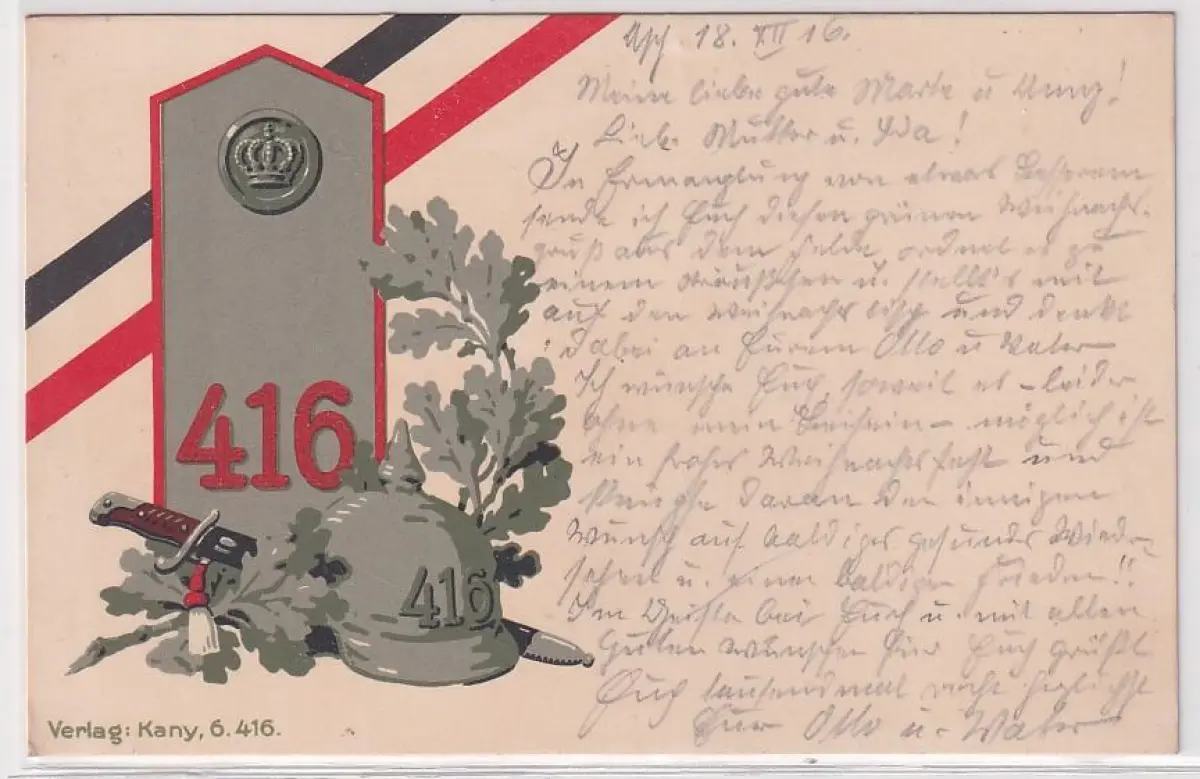 18. XII 16.
Meine liebe gute Marta u
Liebe Mutter u. Ida!
In Ermanglung von etwas Besserem
sende ich Euch diesen grünen Weihnachts-
gruß aus dem Felde, ordnet es zu
einem Sträußchen u. stellt's mit
auf den Weihnachtstisch und denkt
dabei an Euren Otto u Vater
Ich wünsche Euch, soweit es - leider
ohne mein Beisein - möglich ist
ein frohes Weihnachtsfest und
knüpfe daran den innigen
Wunsch auf baldiges gesundes Wieder-
sehen u. einen baldigen Frieden!!
Im Geiste bei Euch u. mit allen
guten Wünschen für Euch grüßt
Euch tausendmal recht herzlichst
Euer Otto u. Vater
416
416
Verlag: Kany, 6. 416.